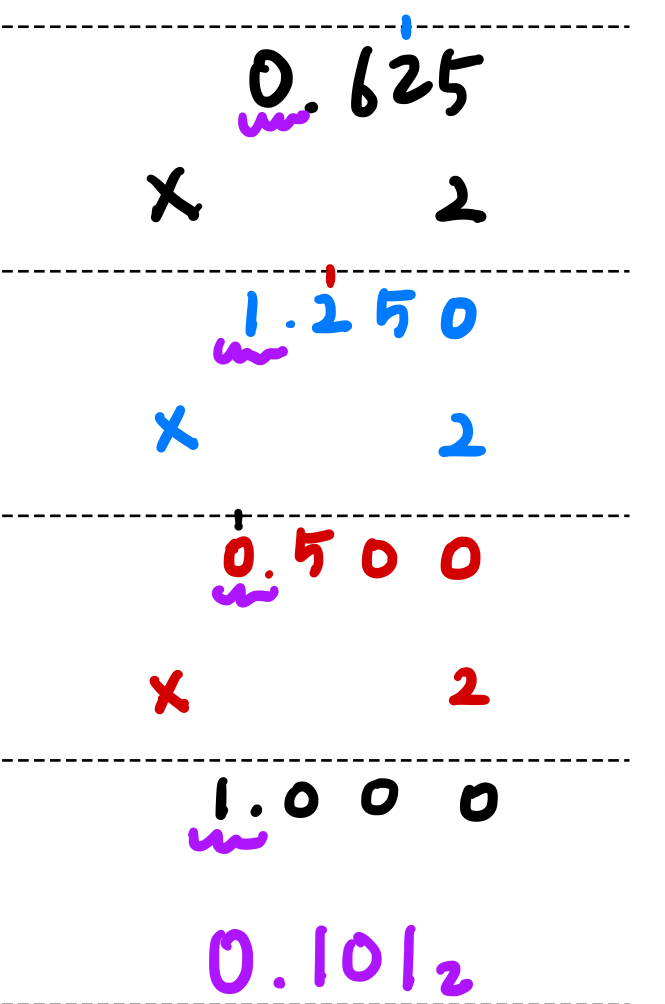 0.625
x 2
1.250
x 2
0.500
x 2
1.000
0.101₂